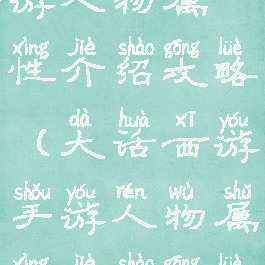 游人物属
xìng jiè shào gōng lüè
性介绍攻略
dà huà xī yóu
(大话西游
shǒu yóu rén wù shǔ
手游人物属
xìng jiè shào gōng lüè